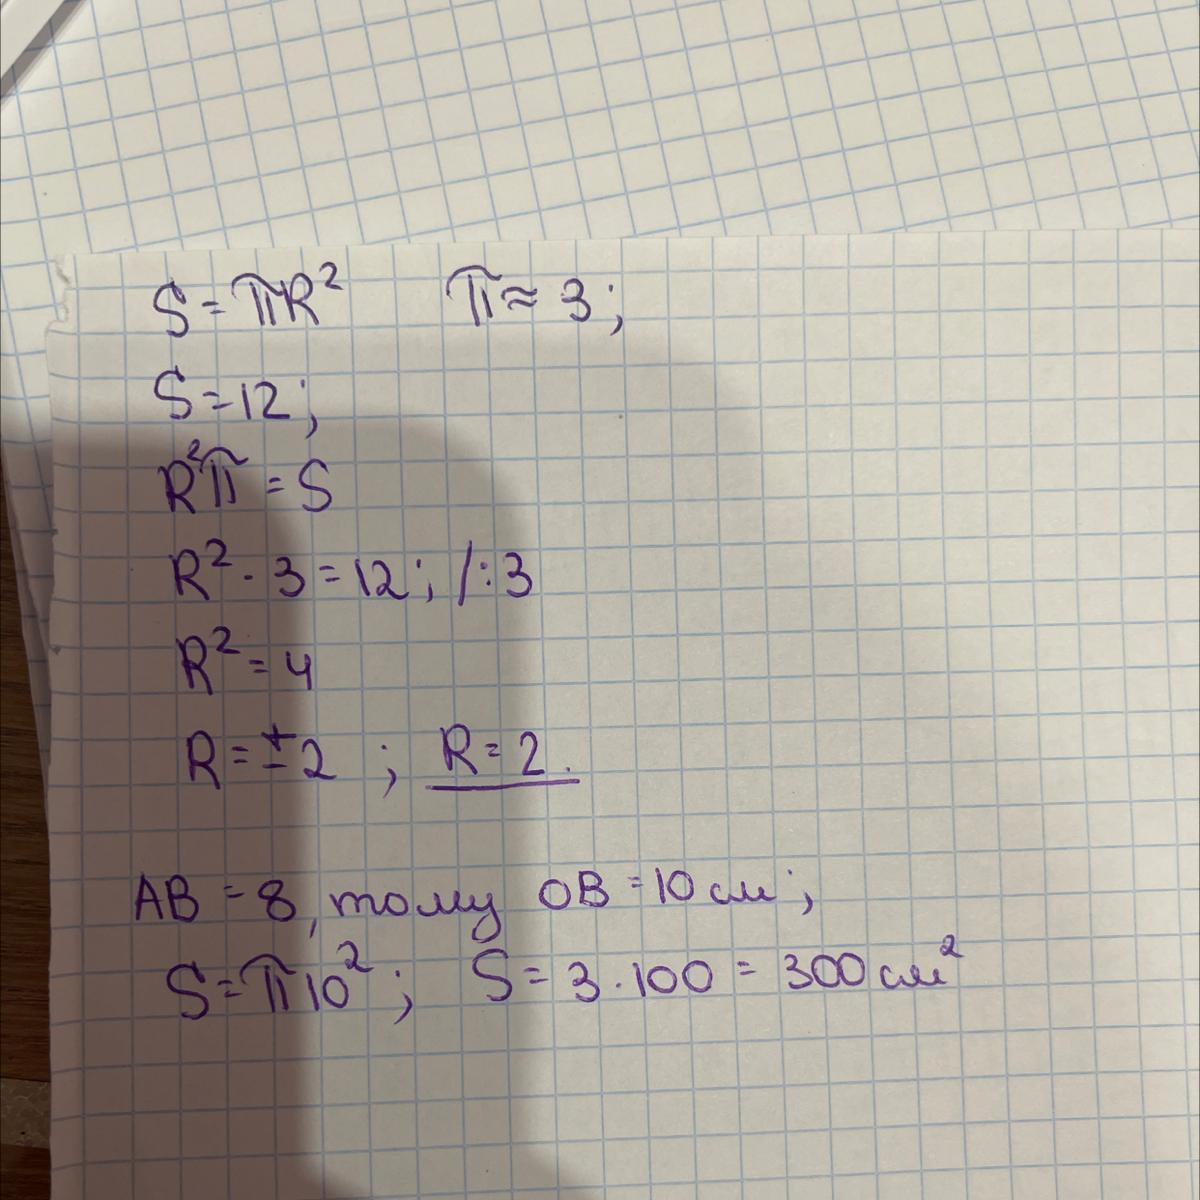 S = πR² π ≈ 3;
S = 12;
R²π = S
R² · 3 = 12; /:3
R² = 4
R = ±2 ; R = 2.
AB = 8, тому OB = 10 см;
S = π10²; S = 3 · 100 = 300 см²